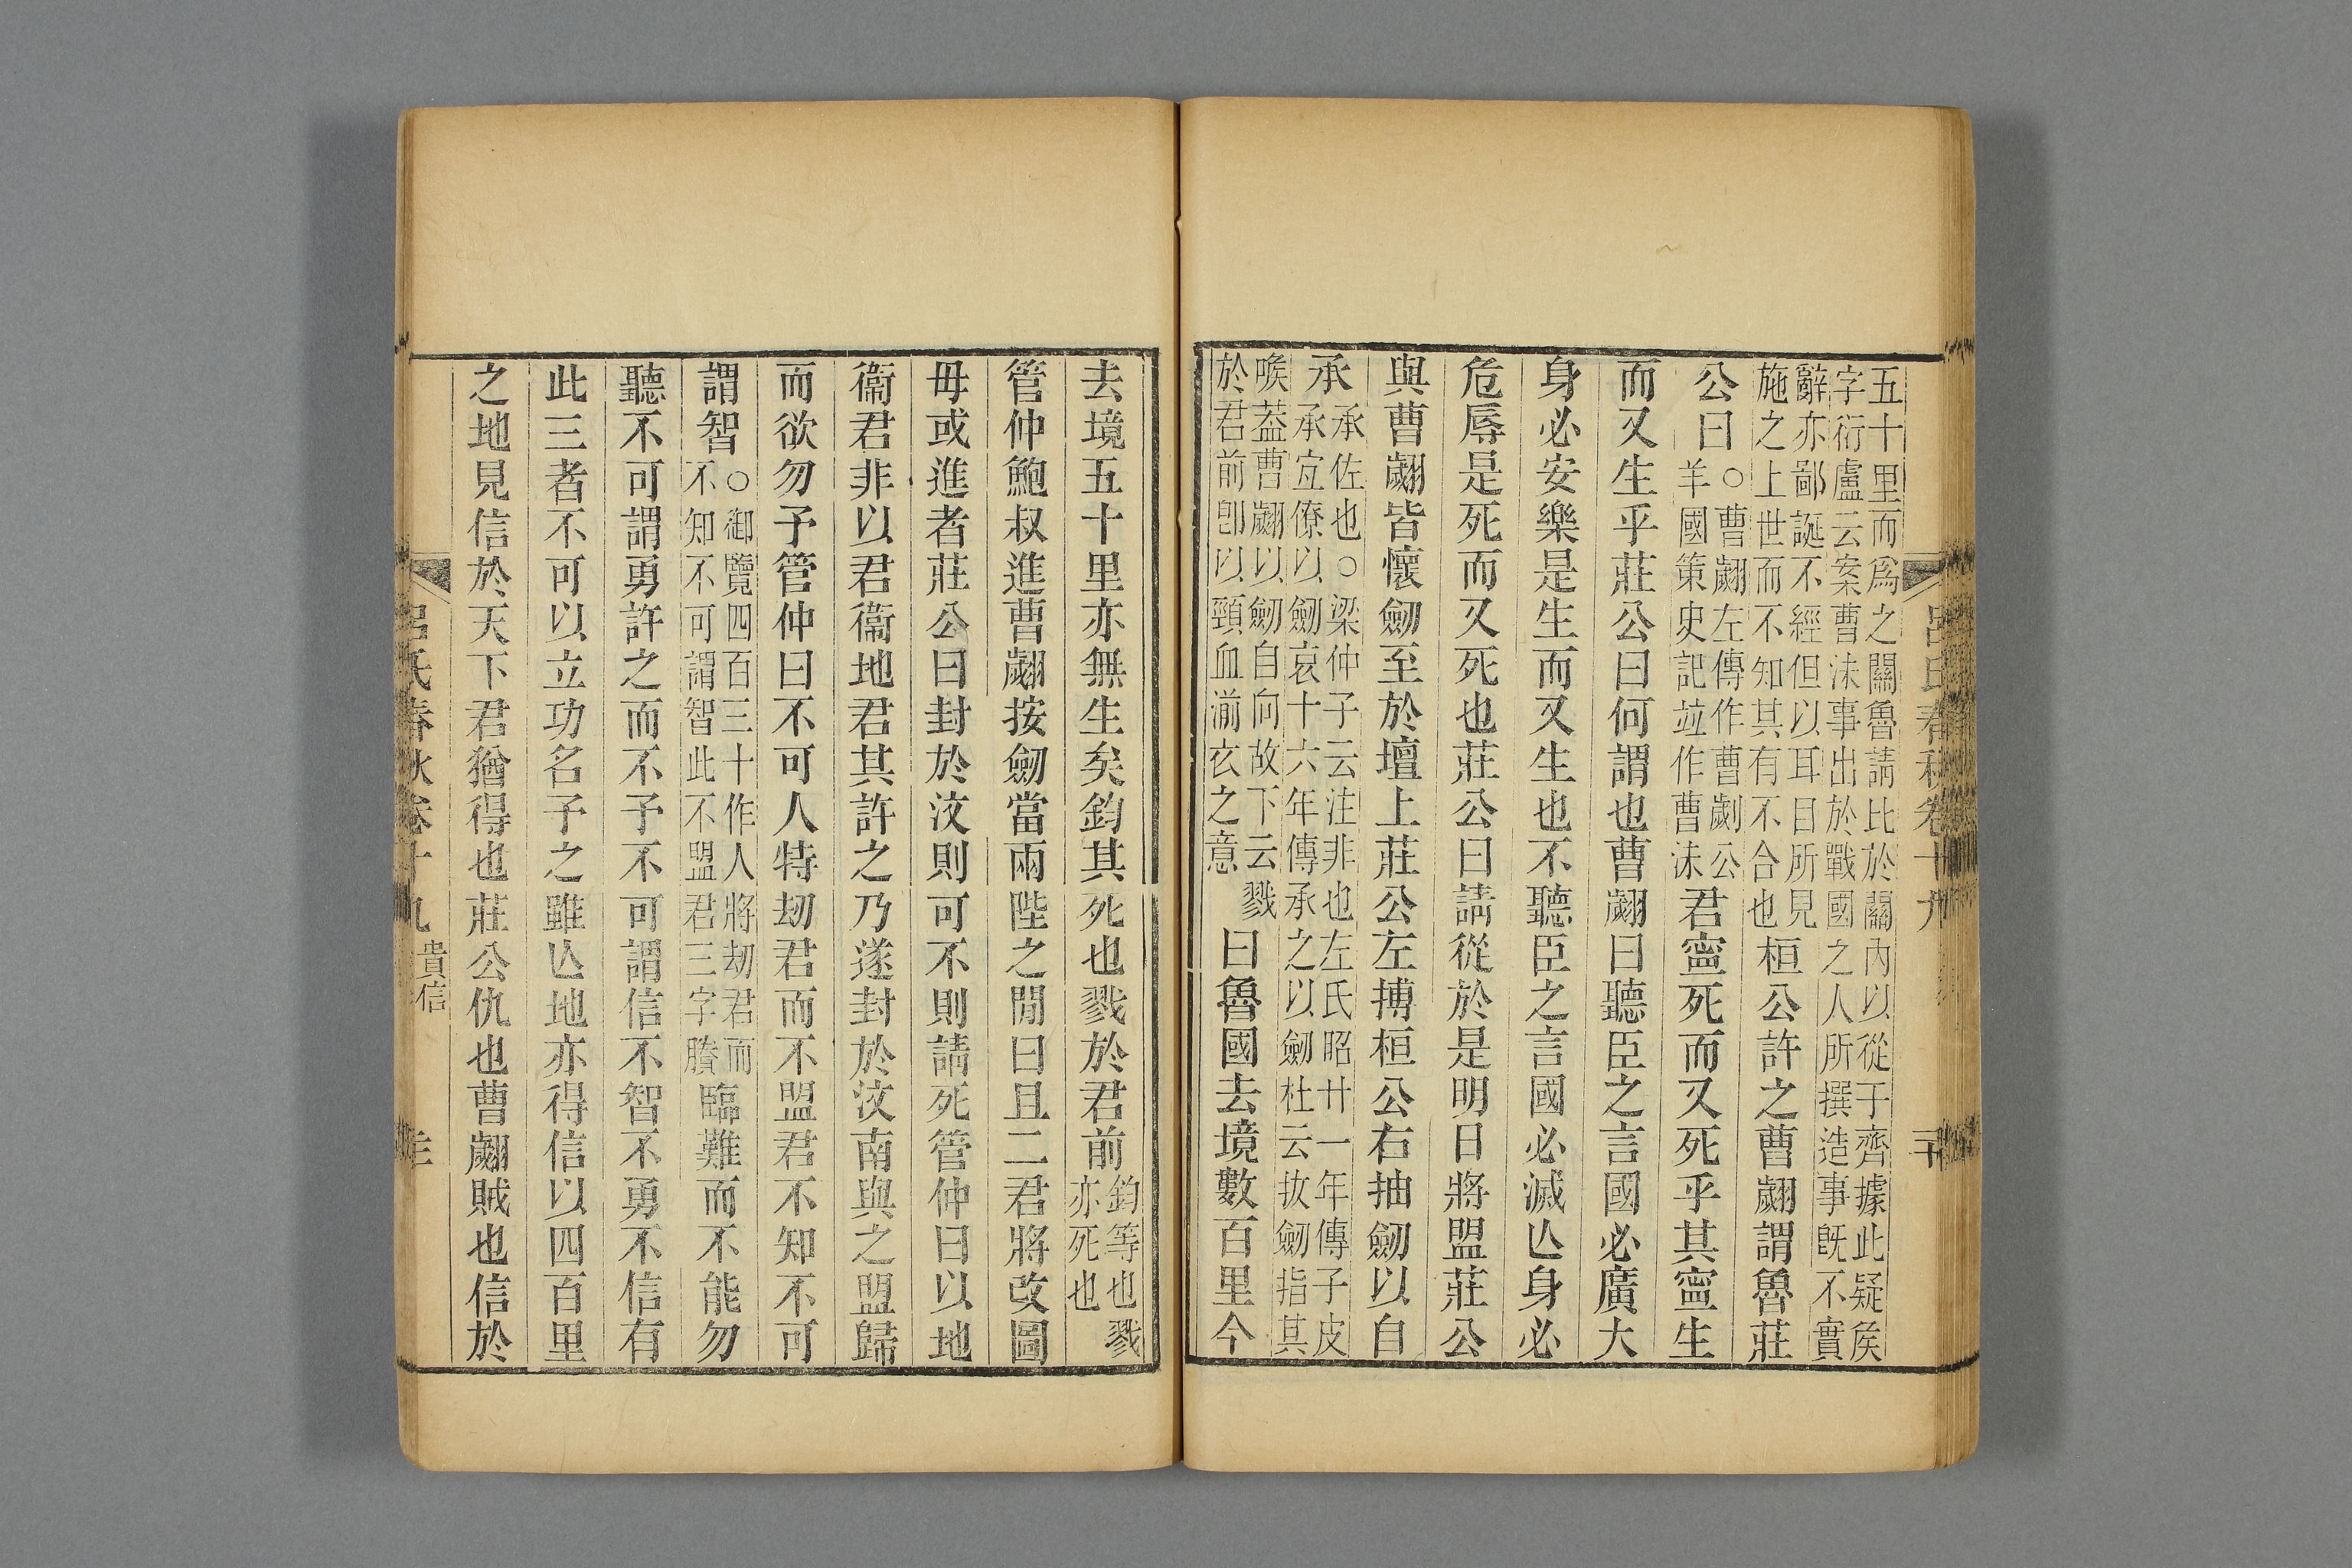 五十里而爲之關魯請比於關內以從于齊據此疑矦
字衍盧云案曹沬事出於戰國之人所撰造事旣不實
辭亦鄙誕不經但以耳目所見
施之上世而不知其有不合也
桓公許之曹翽謂魯莊
公曰
○曹翽左傳作曹劌公
羊國策史記竝作曹沬
君寧死而又死乎其寧生
而又生乎莊公曰何謂也曹翽曰聽臣之言國必廣大
身必安樂是生而又生也不聽臣之言國必滅亾身必
危辱是死而又死也莊公曰請從於是明日將盟莊公
與曹翽皆懷劒至於壇上莊公左搏桓公右抽劒以自
承
承佐也○梁仲子云注非也左氏昭廿一年傳子皮
承宜僚以劒哀十六年傳承之以劒杜云拔劒指其
喉葢曹翽以劒自向故下云戮
於君前卽以頸血湔衣之意
曰魯國去境數百里今
呂氏春秋卷十九
二十
去境五十里亦無生矣鈞其死也戮於君前
鈞等也戮
亦死也
管仲鮑叔進曹翽按劒當兩陛之閒曰且二君將改圖
毋或進者莊公曰封於汶則可不則請死管仲曰以地
衞君非以君衞地君其許之乃遂封於汶南與之盟歸
而欲勿予管仲曰不可人特劫君而不盟君不知不可
謂智
○御覽四百三十作人將劫君而
不知不可謂智此不盟君三字賸
臨難而不能勿
聽不可謂勇許之而不予不可謂信不智不勇不信有
此三者不可以立功名予之雖亾地亦得信以四百里
之地見信於天下君猶得也莊公仇也曹翽賊也信於
呂氏春秋卷十九
貴信